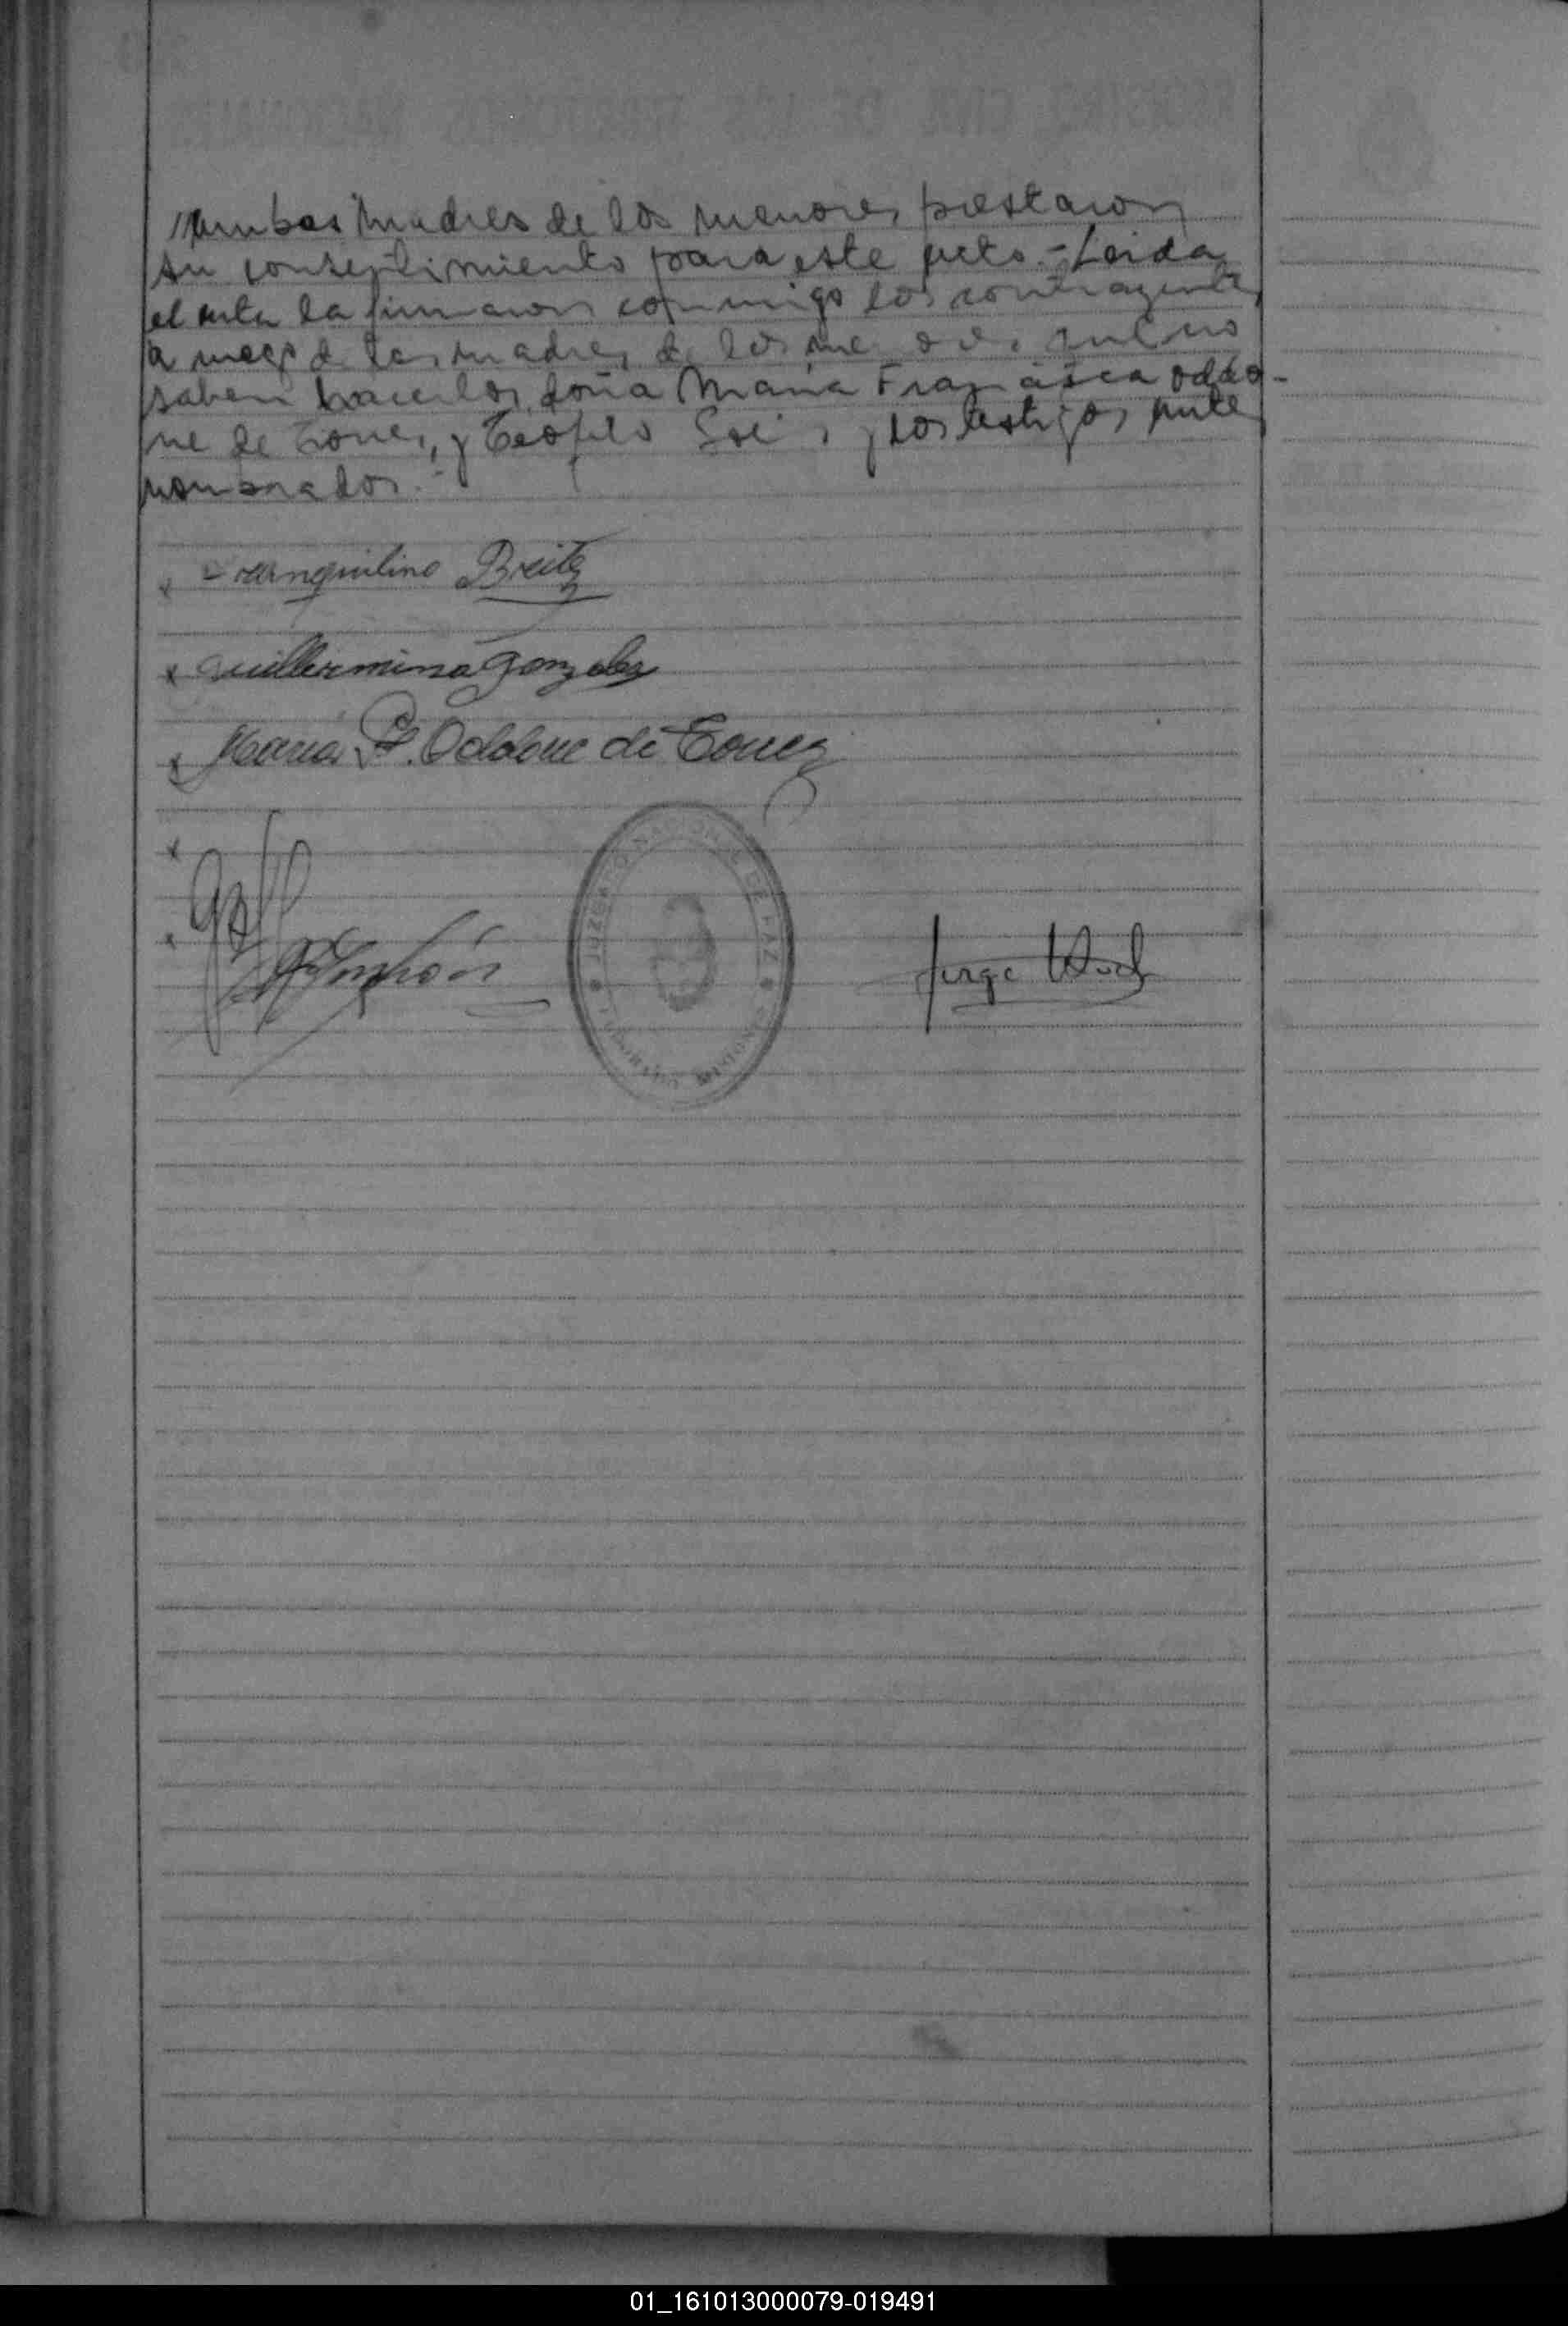 Ambas madres de los menores prestaron
su consentimiento para este acto.- Leida
el acta la firmaron conmigo los contrayentes
a ruego de las madres de los menores que no
saben hacerlos, doña Maria Francisca Oddo-
ne de Torres, y Teofilo y los testigos ante
nombrados.-
Tranquilino Breitz
Guillermina Gonzalez
Maria F. Oddone de Torres
JUZGADO NACIONAL DE PAZ
Jorge
01_161013000079-019491